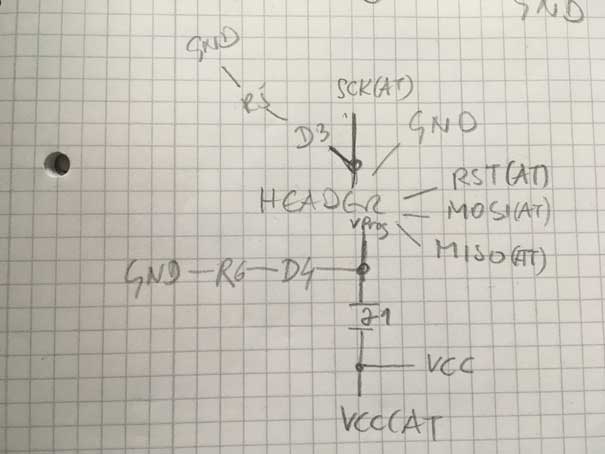 GND
GND
R5
SCK(AT)
D3
GND
HEADER
RST(AT)
MOSI(AT)
VProg
MISO(AT)
GND-R6-D4
J1
VCC
VCC(AT